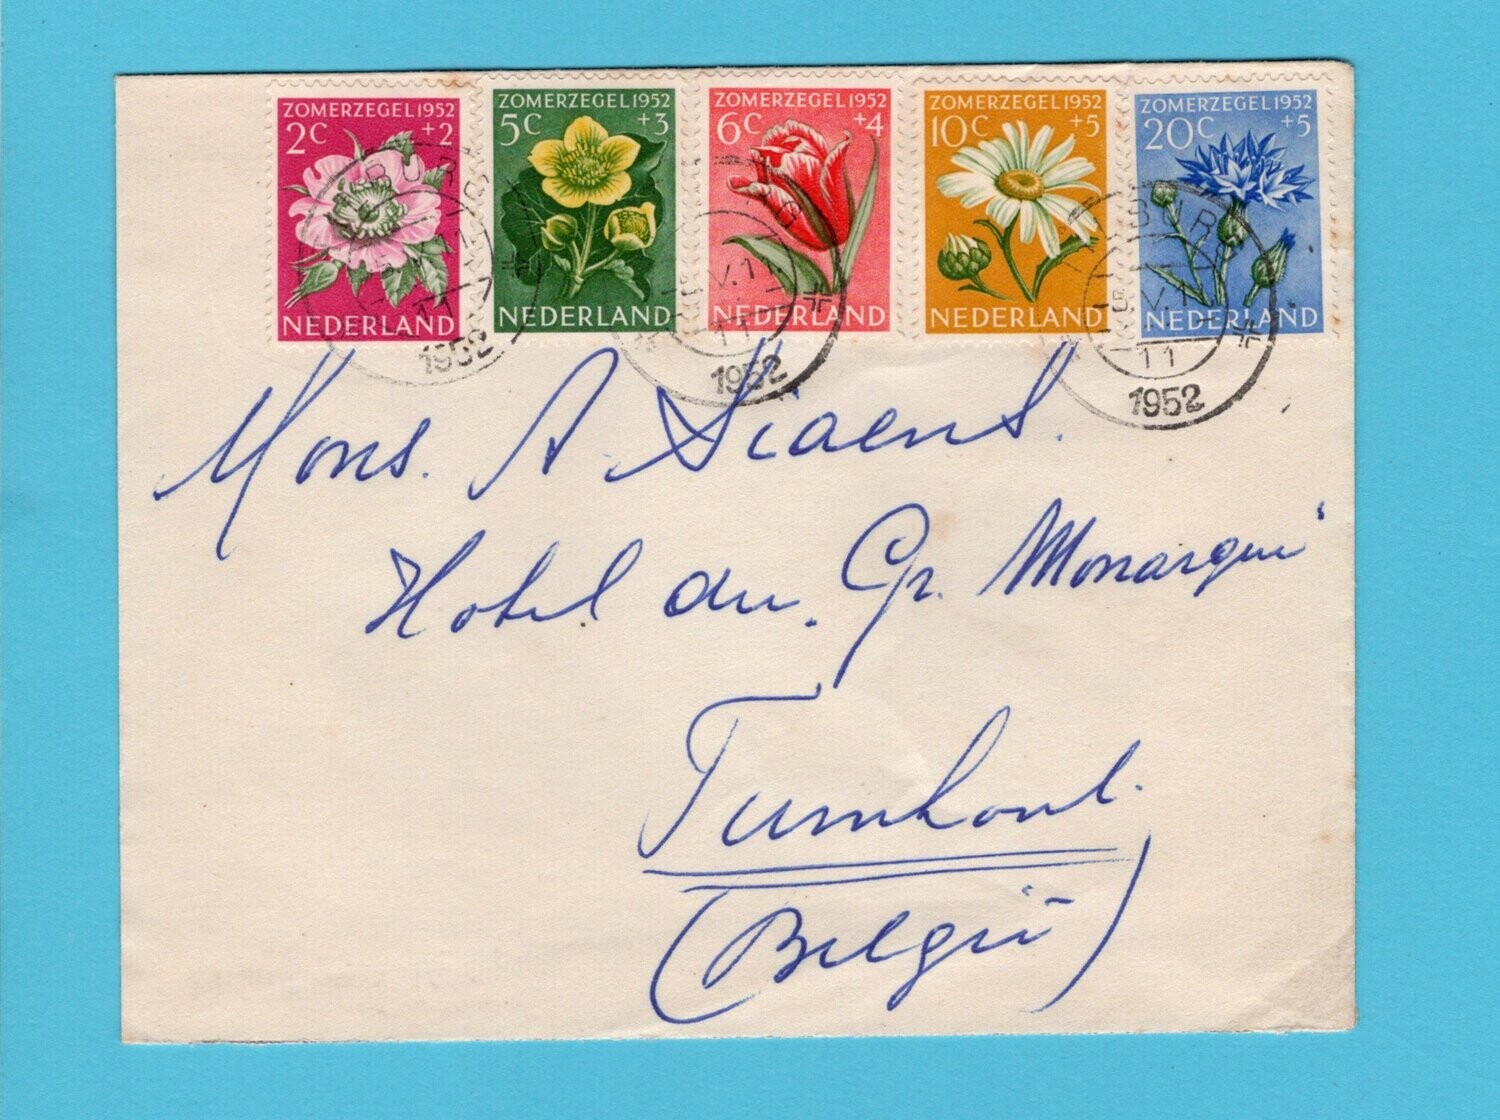 ZOMERZEGEL 1952
2C +2
NEDERLAND
ZOMERZEGEL 1952
5C +3
NEDERLAND
ZOMERZEGEL 1952
6C +4
NEDERLAND
ZOMERZEGEL 1952
10C +5
NEDERLAND
ZOMERZEGEL 1952
20C +5
NEDERLAND
11
1952
11
1952
11
1952
Mons. A. Siaens.
Hotel du. Gr. Monarque
Turnhout.
(België)